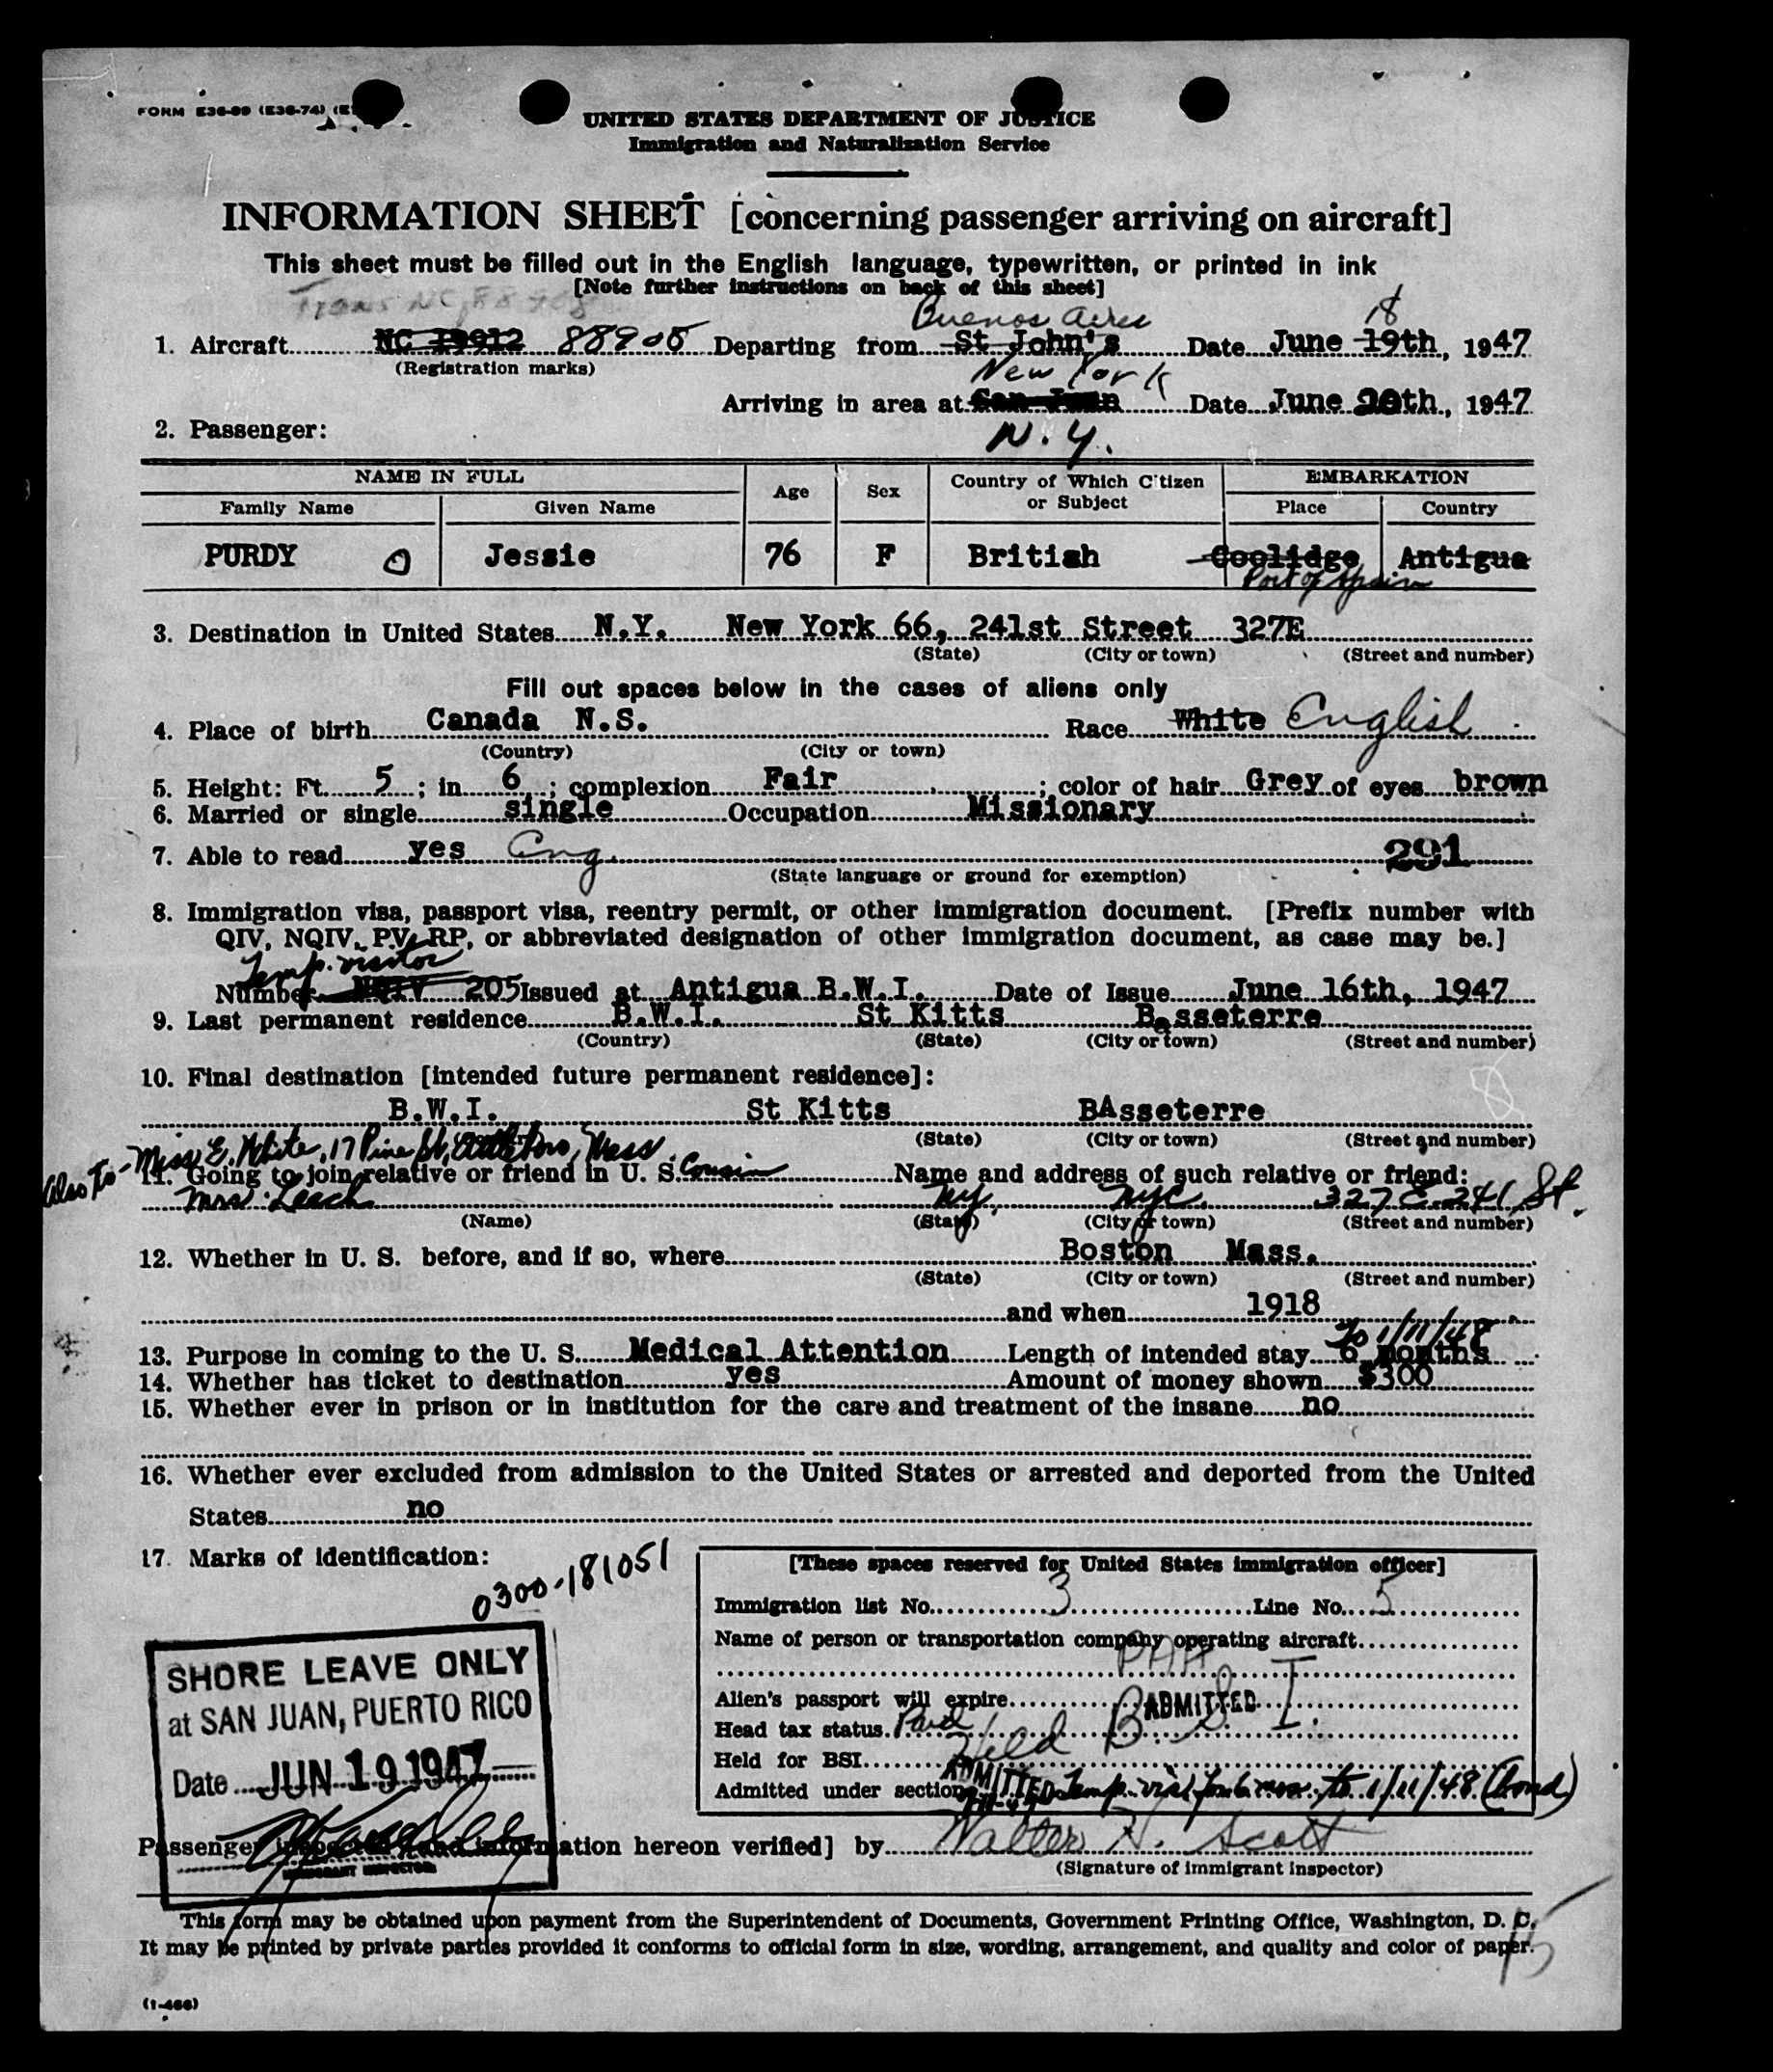 FORM E36-89 (E36-74) (E
UNITED STATES DEPARTMENT OF JUSTICE
Immigration and Naturalization Service
INFORMATION SHEET [concerning passenger arriving on aircraft]
This sheet must be filled out in the English language, typewritten, or printed in ink
[Note further instructions on back of this sheet]
Trans NC
Buenos Aires 18
1. Aircraft NC 19912 88905 Departing from St John's Date June 19th, 1947
(Registration marks)
New York
Arriving in area at San Juan Date June 20th, 1947
2. Passenger: N.Y.
NAME IN FULL Age Sex Country of Which Citizen or Subject EMBARKATION
Family Name Given Name Place Country
PURDY Jessie 76 F British Coolidge Antigua
Port of Spain
3. Destination in United States N.Y. New York 66, 241st Street 327E
(State) (City or town) (Street and number)
Fill out spaces below in the cases of aliens only
4. Place of birth Canada N.S. Race White English
(Country) (City or town)
5. Height: Ft. 5 ; in 6 ; complexion Fair ; color of hair Grey of eyes brown
6. Married or single single Occupation Missionary
7. Able to read yes Eng. 291
(State language or ground for exemption)
8. Immigration visa, passport visa, reentry permit, or other immigration document. [Prefix number with
QIV, NQIV, PV, RP, or abbreviated designation of other immigration document, as case may be.]
Temp. visitor
Number NQIV 205 Issued at Antigua B.W.I. Date of Issue June 16th, 1947
9. Last permanent residence B.W.I. St Kitts Basseterre
(Country) (State) (City or town) (Street and number)
10. Final destination [intended future permanent residence]:
B.W.I. St Kitts BAsseterre
(State) (City or town) (Street and number)
Also to - Miss E. White, 17 Pine St, Attleboro, Mass.
11. Going to join relative or friend in U. S. Cousin Name and address of such relative or friend:
Mrs. Leach NY. NYC. 327 E. 241 St.
(Name) (State) (City or town) (Street and number)
12. Whether in U. S. before, and if so, where Boston Mass.
(State) (City or town) (Street and number)
and when 1918
To 1/11/48
13. Purpose in coming to the U. S. Medical Attention Length of intended stay 6 months
14. Whether has ticket to destination yes Amount of money shown $300
15. Whether ever in prison or in institution for the care and treatment of the insane no
16. Whether ever excluded from admission to the United States or arrested and deported from the United
States no
17. Marks of identification:
0300-181051
[These spaces reserved for United States immigration officer]
Immigration list No. 3 Line No. 5
Name of person or transportation company operating aircraft
PAA
Alien's passport will expire ADMITTED
Head tax status Paid Held B S I.
Held for BSI
Admitted under section ADMITTED Temp. vis. for 6 mos. to 1/11/48 (bond)
SHORE LEAVE ONLY
at SAN JUAN, PUERTO RICO
Date JUN 19 1947
IMMIGRANT INSPECTOR
Passenger inspected [and information hereon verified] by Walter N. Scott
(Signature of immigrant inspector)
This form may be obtained upon payment from the Superintendent of Documents, Government Printing Office, Washington, D. C.
It may be printed by private parties provided it conforms to official form in size, wording, arrangement, and quality and color of paper.
(1-466)